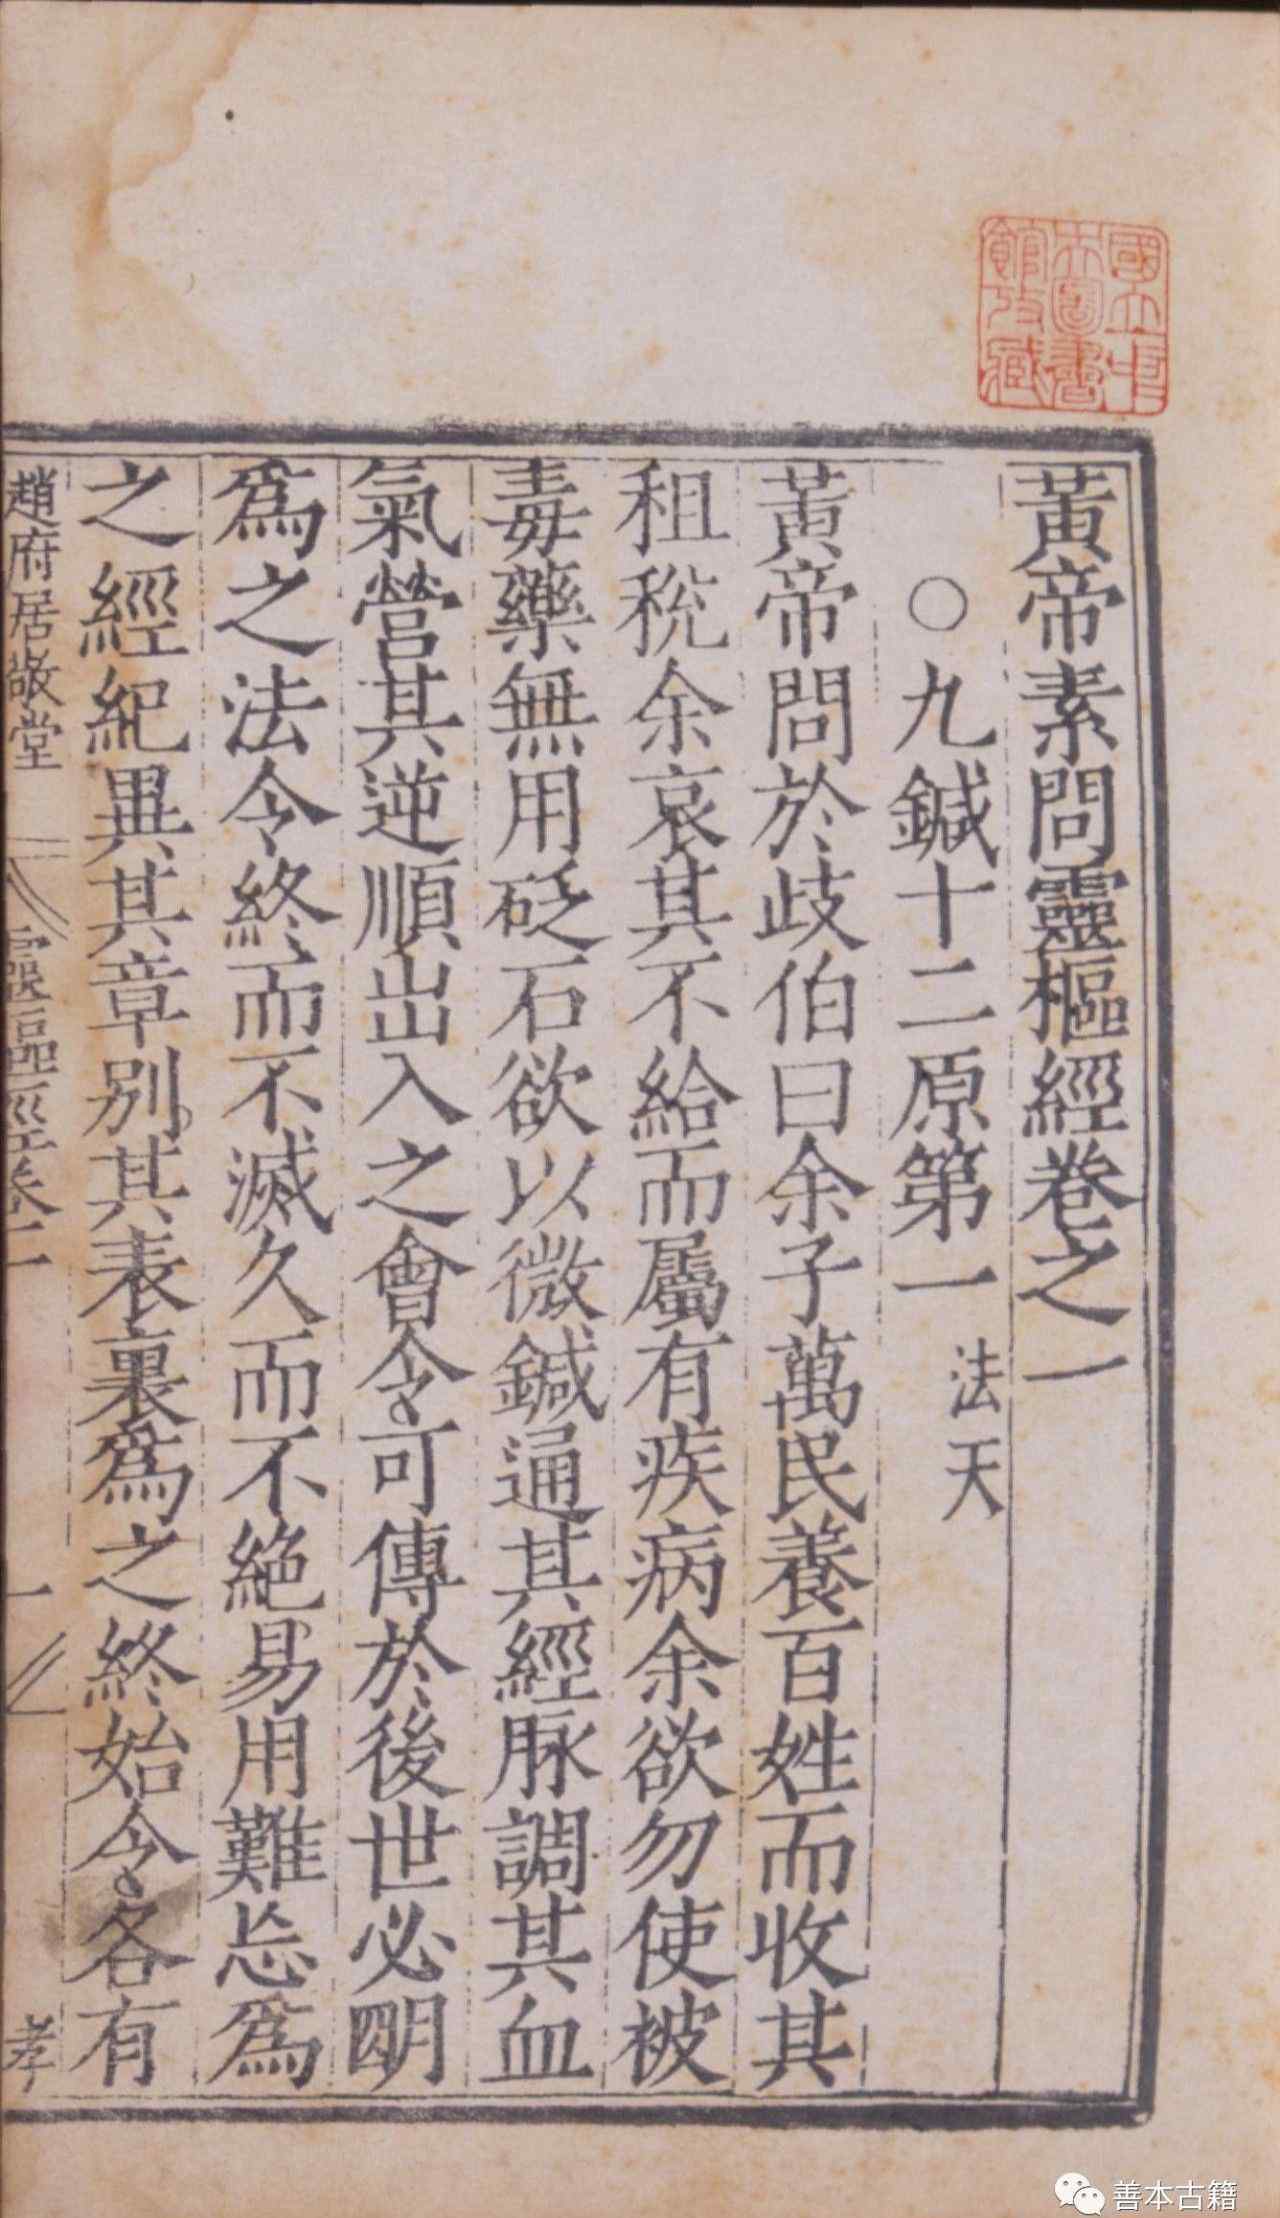 國立中
央圖書
館收藏
黃帝素問靈樞經卷之一
○九鍼十二原第一 法天
黃帝問於歧伯曰余子萬民養百姓而收其
租稅余哀其不給而屬有疾病余欲勿使被
毒藥無用砭石欲以微鍼通其經脉調其血
氣營其逆順出入之會令可傳於後世必明
爲之法令終而不滅久而不絶易用難忘爲
之經紀異其章別其表裏爲之終始令各有
趙府居敬堂 靈樞經卷一 一 孝
善本古籍